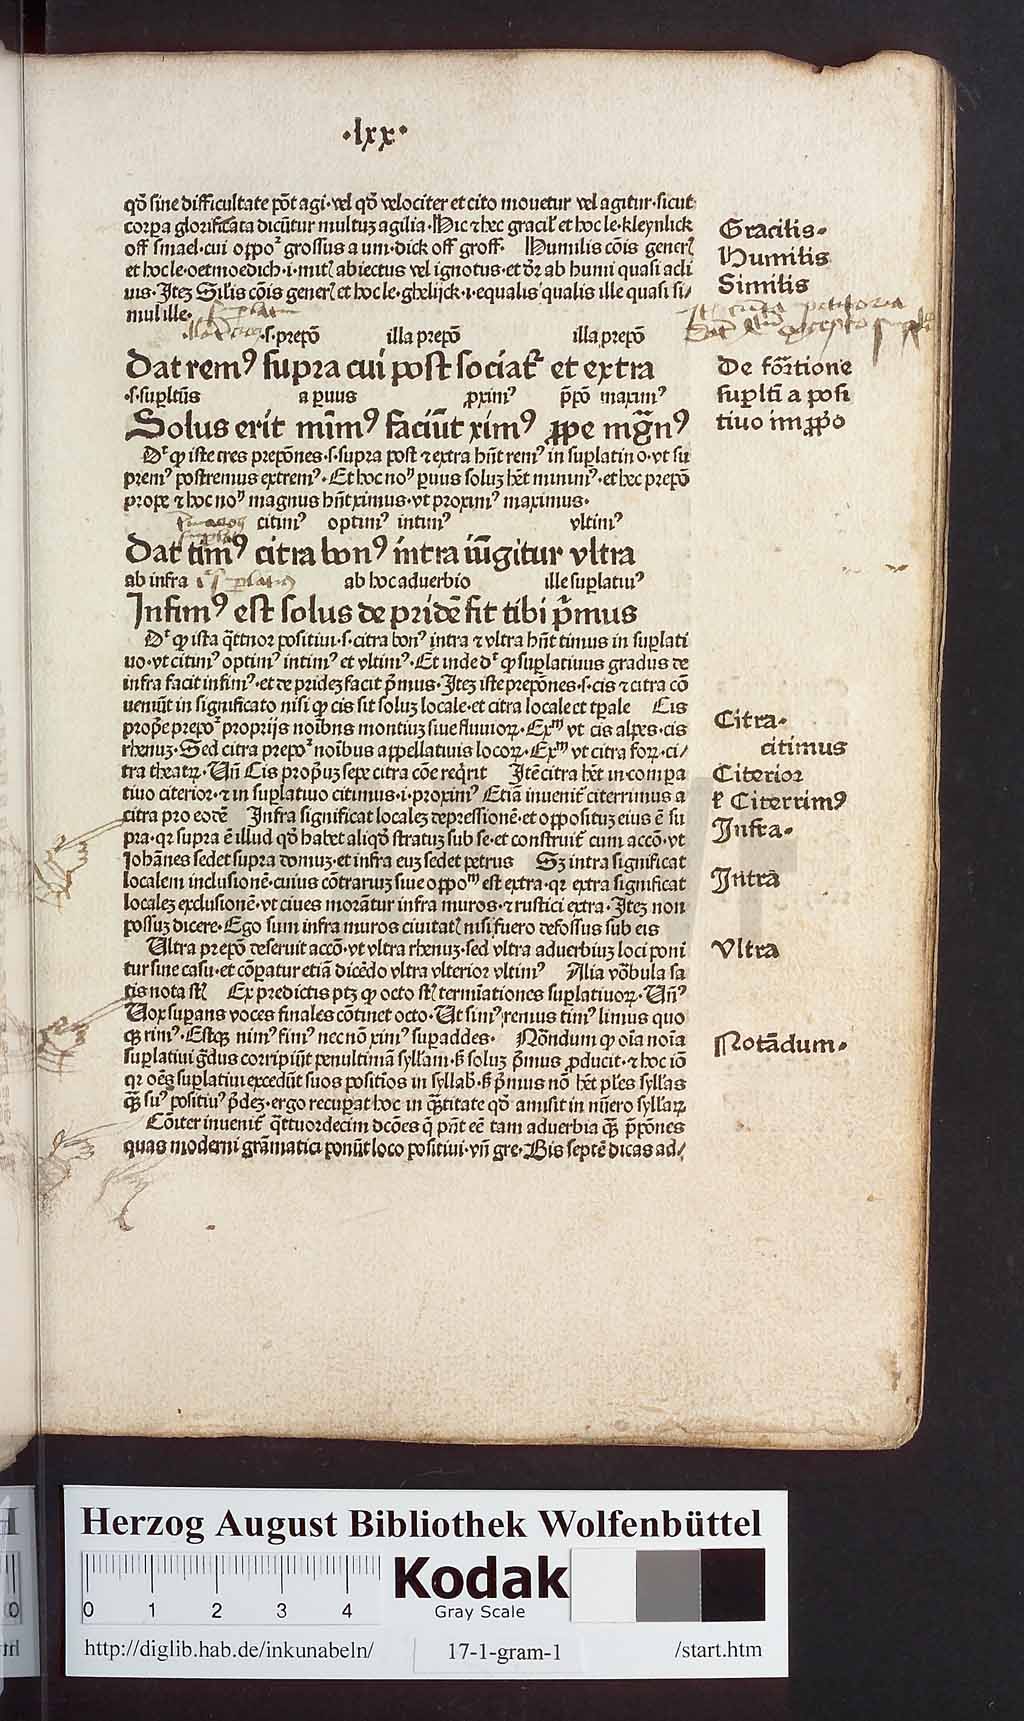 ·lxx·
qđ sine difficultate põt agi·vel qđ velociter et cito mouetur vel agitur·sicut
corpa glorificata dicũtur multuʒ agilia·Hic ⁊ hec gracil' et hoc le·kleynlick
off smael·cui oppoꝰ grossus a um·dick off groff· Humilis cõis gener'
et hoc le·oetmoedich·i·mit' abiectus vel ignotus·et đr ab humi quasi acli
uis·Iteʒ Sil'is cõis gener' et hoc le·ghelijck·i·equalis qualis ille quasi si/
mul ille·
Gracilis·
Humilis
Similis
·s·prepõ illa prepõ illa prepõ
Dat remꝰ supra cui post sociat᷑ et extra
·s·suplt̃us a puus ꝓximꝰ p̃põ maximꝰ
Solus erit mĩmꝰ faciũt ximꝰ ꝓpe mg̃nꝰ
De fõrtione
suplt̃i a posi
tiuo improp̱o
Dꝛ ꝙ iste tres prepõnes·s·supra post ⁊ extra hñt remꝰ in suplatiuo·vt su
premꝰ postremus extremꝰ·Et hoc noⁿ puus soluʒ hʒt minimꝰ·et hec prepõ
prope ⁊ hoc noⁿ magnus hñt ximus·vt proximꝰ maximus·
citimꝰ optimꝰ intimꝰ vltimꝰ
Dat timꝰ citra bonꝰ intra iũgitur vltra
ab infra ab hoc aduerbio ille suplatiuꝰ
Infimꝰ est solus de pridẽ fit tibi p̃mus
Dꝛ ꝙ ista q̃ttuor positiui·s·citra bonꝰ intra ⁊ vltra hñt timus in suplati
uo·vt citimꝰ optimꝰ intimꝰ et vltimꝰ·Et inde dꝛ ꝙ suplatiuus gradus de
infra facit infimꝰ·et de prideʒ facit p̃mus·Iteʒ iste prepõnes·s·cis ⁊ citra cõ
ueniũt in significato nisi ꝙ cis sit soluʒ locale·et citra locale et tpale Cis
prop̃e prepoꝰ proprijs noĩbus montiuʒ siue fluuioꝝ·Exᵐ vt cis alpes·cis
rhenuʒ·Sed citra prepoꝰ noĩbus appellatiuis locoꝝ·Exᵐ vt citra foꝝ·ci/
tra theatꝝ·Vñ Cis prop̃uʒ sepe citra cõe req̃rit Itẽ citra hʒt in compa
tiuo citerior·⁊ in suplatiuo citimus·i·proximꝰ Etiã inuenit᷑ citerrimus a
citra pro eodẽ Infra significat localeʒ depressionẽ·et oppositus eius ẽ su
pra·qꝛ supra ẽ illud qđ habet aliqđ stratuʒ sub se·et construit᷑ cum accõ·vt
Iohãnes sedet supra domuʒ·et infra euʒ sedet petrus Sʒ intra significat
localem inclusionẽ·cuius cõtrariuʒ siue oppoᵐ est extra·qꝛ extra significat
localeʒ exclusionẽ·vt ciues morãtur infra muros·⁊ rustici extra·Iteʒ non
possuʒ dicere·Ego sum infra muros ciuitat' nisi fuero defossus sub eis
Citra·
citimus
Citerior
⁊ Citerrimꝰ
Infra·
Intra
Vltra prepõ deseruit accõ·vt vltra rhenuʒ·sed vltra aduerbiuʒ loci poni
tur sine casu·et cõpatur etiã dicẽdo vltra vlterior vltimꝰ Alia võbula sa
tis nota st̃ Ex predictis ptʒ ꝙ octo st̃ termĩationes suplatiuoꝝ·Vñꝰ
Vox supans voces finales cõtinet octo·Vt simꝰ remus timꝰ limus quo
qꝫ rimꝰ·Estqꝫ nimꝰ fimꝰ nec nõ ximꝰ supaddes· Nõndum ꝙ oĩa noĩa
suplatiui g̃dus corripiũt penultimã syllam·sʒ soluʒ p̃mus ꝓducit·⁊ hoc iõ
qꝛ oẽs suplatiui excedũt suos positĩos in syllab'·sʒ p̃mus nõ hʒt pl'es syllãs
q̃ʒ suꝰ positiuꝰ p̃deʒ·ergo recupat hoc in q̃titate qđ amisit in nũero syllaꝝ
Vltra
Notãdum·
Cõiter inuenit᷑ q̃ttuordecim dcões q̃ pñt eẽ tam aduerbia q̃ʒ p̃põnes
quas moderni grãmatici ponũt loco positiui·vñ gre·Bis septẽ dicas ad/
Herzog August Bibliothek Wolfenbüttel
Kodak
Gray Scale
0 1 2 3 4
http://diglib.hab.de/inkunabeln/ 17-1-gram-1 /start.htm